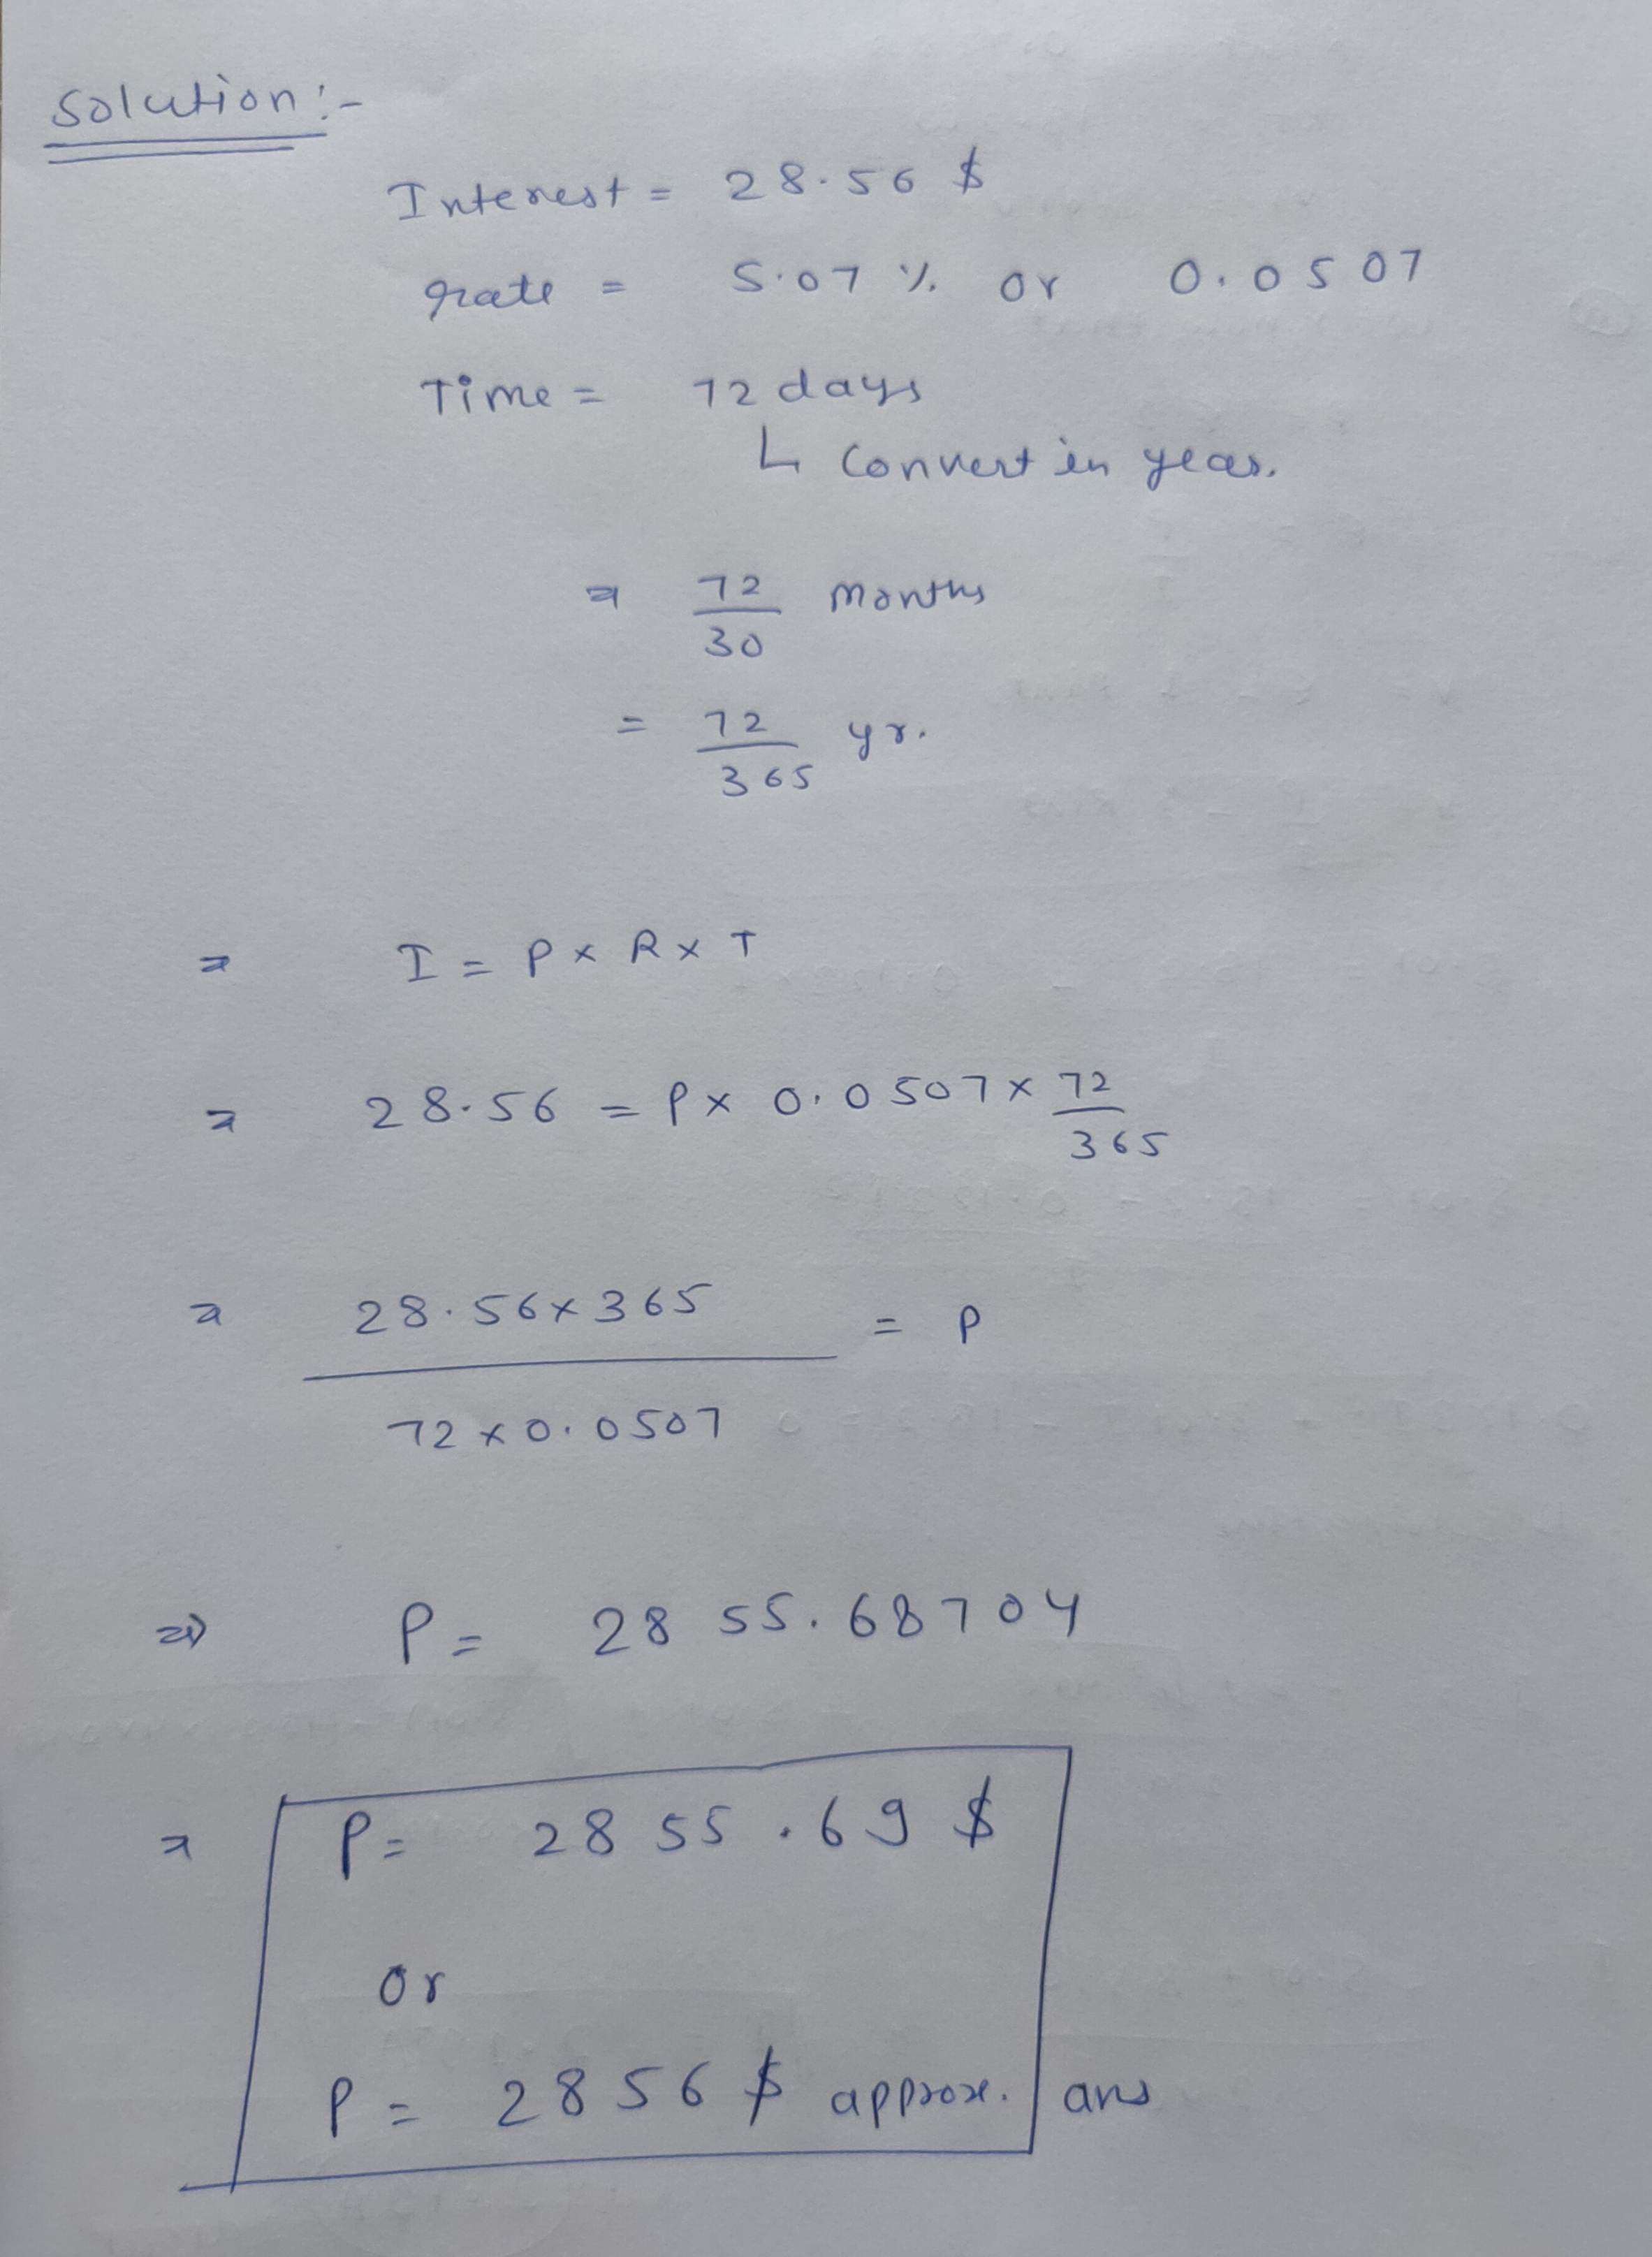 Solution:-
Interest = 28.56 $
rate = 5.07 % or 0.0507
Time = 72 days
↳ Convert in year.
⇒ 72/30 months
= 72/365 yr.
⇒ I = P × R × T
⇒ 28.56 = P × 0.0507 × 72/365
⇒ 28.56 × 365 / 72 × 0.0507 = P
⇒ P = 2855.68704
⇒ P = 2855.69 $
Or
P = 2856 $ approx. ans